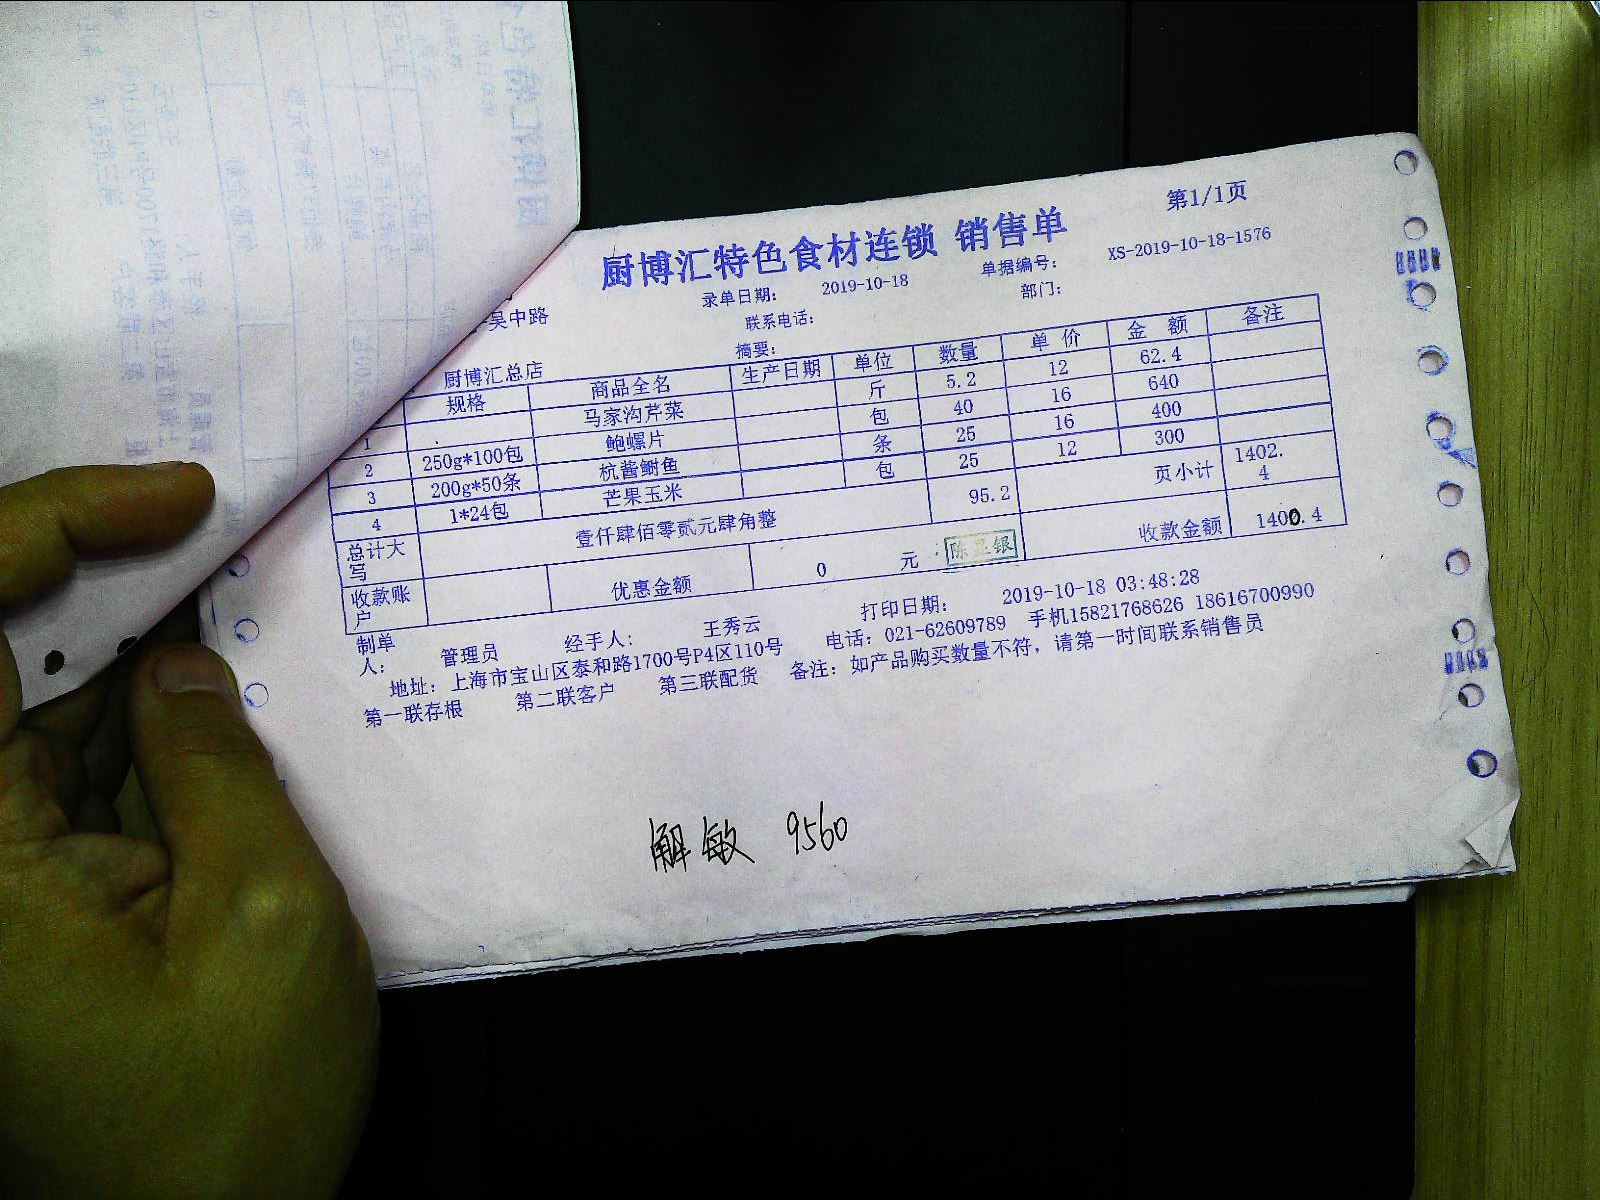 第1/1页
厨博汇特色食材连锁 销售单
录单日期: 2019-10-18 单据编号: XS-2019-10-18-1576
吴中路 联系电话: 部门:
厨博汇总店 摘要:
规格 商品全名 生产日期 单位 数量 单价 金额 备注
1 马家沟芹菜 斤 5.2 12 62.4
2 250g*100包 鲍螺片 包 40 16 640
3 200g*50条 杭酱鲥鱼 条 25 16 400
4 1*24包 芒果玉米 包 25 12 300
总计大写 壹仟肆佰零贰元肆角整 95.2 页小计 1402.4
收款账户 优惠金额 0 元 收款金额 1400.4
制单人: 管理员 经手人: 王秀云 打印日期: 2019-10-18 03:48:28
地址: 上海市宝山区泰和路1700号P4区110号 电话: 021-62609789 手机15821768626 18616700990
第一联存根 第二联客户 第三联配货 备注: 如产品购买数量不符，请第一时间联系销售员
解敏 9560